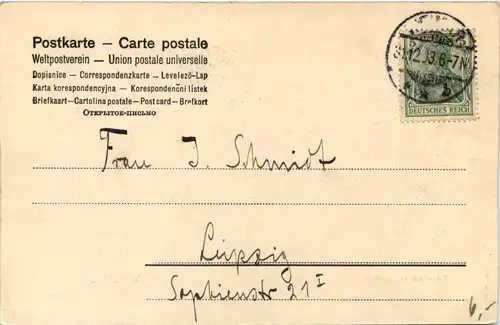 Postkarte – Carte postale
Weltpostverein – Union postale universelle
Dopisnice – Correspondenzkarte – Levelező-Lap
Karta korespondencyjna – Korespondenční listek
Briefkaart – Cartolina postale – Post card – Brefkort
Открытое-письмо
DEUTSCHES REICH
Frau J. Schmidt
Leipzig
Sophienstr 21 I
6,-